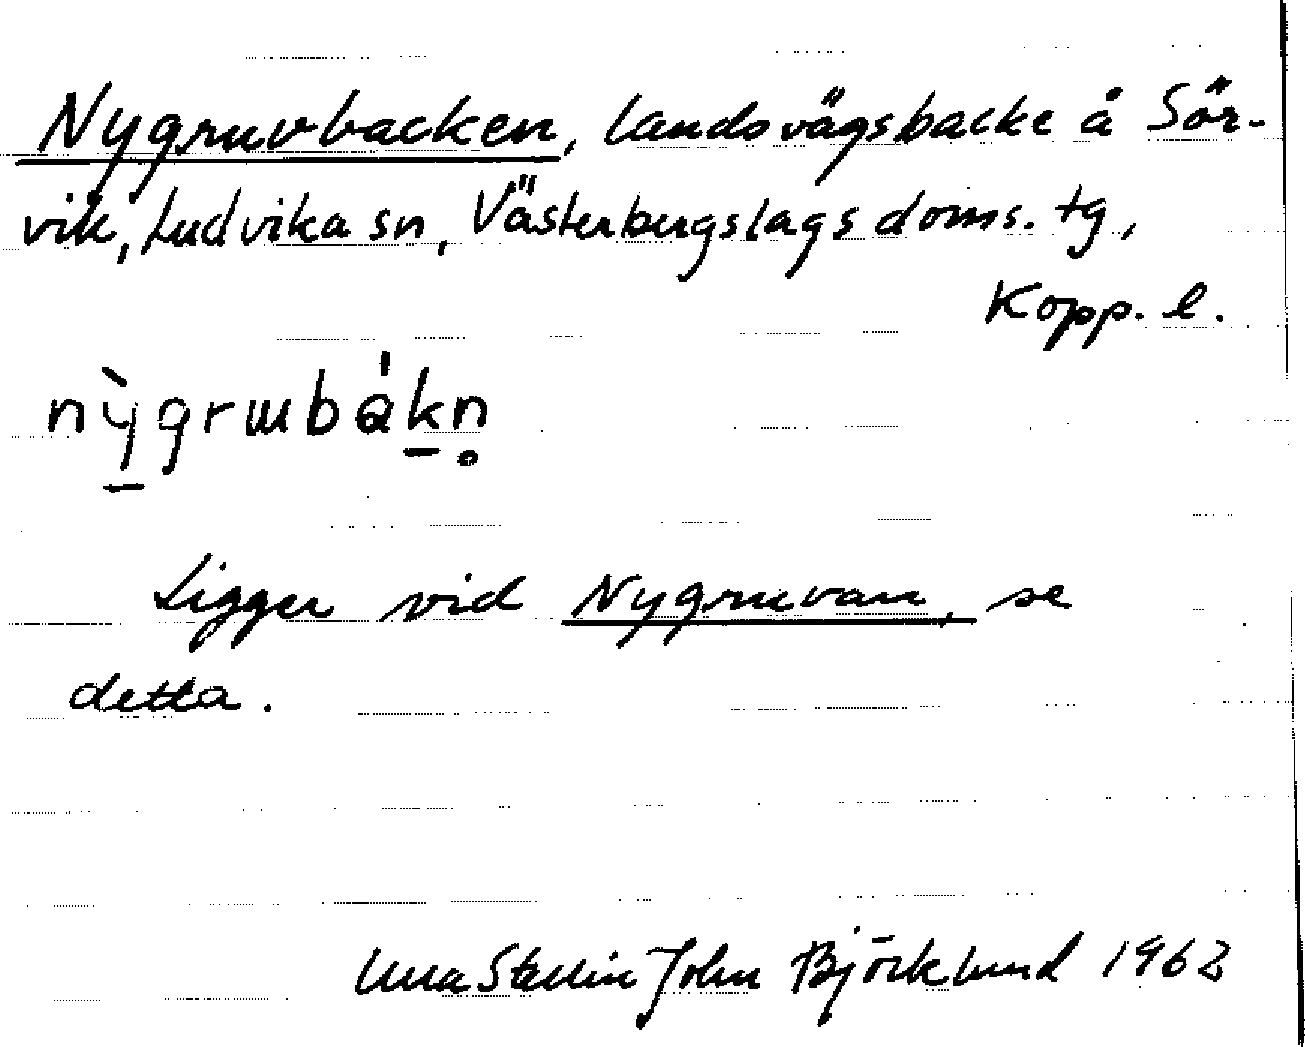 Nygruvbacken, landsvägsbacke å Sör-
vik, Ludvika sn, Västerbergslags doms. tg,
Kopp. l.
nỳ̠grɯbák̠n̥
Ligger vid Nygruvan, se
detta.
Ulla Stellin John Björklund 1962